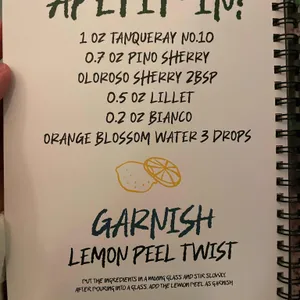 APETIT-IN!
1 OZ TANQUERAY NO.10
0.7 OZ PINO SHERRY
OLOROSO SHERRY 2BSP
0.5 OZ LILLET
0.2 OZ BIANCO
ORANGE BLOSSOM WATER 3 DROPS
GARNISH
LEMON PEEL TWIST
PUT THE INGREDIENTS IN A MIXING GLASS AND STIR SLOWLY.
AFTER POURING INTO A GLASS, ADD THE LEMON PEEL AS GARNISH